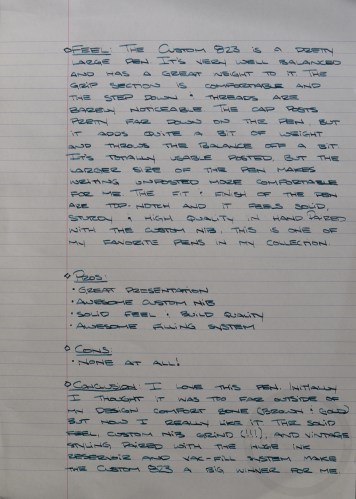 ◊ Feel: The Custom 823 is a pretty
large pen. It's very well balanced
and has a great weight to it. The
grip section is comfortable and
the step down + threads are
barely noticeable. The cap posts
pretty far down on the pen, but
it adds quite a bit of weight
and throws the balance off a bit.
It's totally usable posted, but the
larger size of the pen makes
writing unposted more comfortable
for me. The fit + finish of the pen
are top-notch and it feels solid,
sturdy + high quality in hand. Paired
with the custom nib, this is one of
my favorite pens in my collection.
◊ Pros:
• Great presentation
• Awesome custom nib
• Solid feel + build quality
• Awesome filling system
◊ Cons:
• None at all!
◊ Conclusion: I love this pen. Initially
I thought it was too far outside of
my design comfort zone (brown + gold)
but now I really like it. The solid
feel, custom nib grind (!!!), and vintage
styling paired with the huge ink
reservoir and vac-fill system make
the Custom 823 a big winner for me.